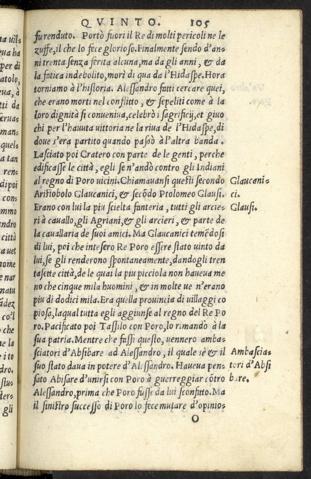 QVINTO. 105
fu renduto. Portò fuori il Re di molti pericoli ne le
zuffe, il che lo fece glorioso. Finalmente sendo d'an-
ni trenta senza ferita alcuna, ma da gli anni, & da
la fatica indebolito, morì di qua da l'Hidaspe. Hora
torniamo à l'historia. Alessandro fatti cercare quei,
che erano morti nel conflitto, & sepeliti come à la
loro dignità si conueniua, celebrò i sagrificij, et giuo
chi per l'hauuta vittoria ne la riua de l'Hidaspe, di
doue s'era partito quando passò à l'altra banda.
Lasciato poi Cratero con parte de le genti, perche
edificasse le città, egli se n'andò contro gli Indiani
al regno di Poro uicini. Chiamauansi questi secondo
Aristobolo Glaucanici, & secōdo Ptolomeo Glausi.
Glaucani-
ci.
Glausi.
Erano con lui la piu scielta fanteria, tutti gli arcie
ri à cauallo, gli Agriani, & gli arcieri, & parte de
la cauallaria de suoi amici. Ma Glaucanici temēdosi
di lui, poi che intesero Re Poro essere stato uinto da
lui, se gli renderono spontaneamente, dandogli tren
tasette città, de le quai la piu picciola non haueua me
no che cinque mila huomini, & in molte ue n'erano
piu di dodici mila. Era quella prouincia di uillaggi co
piosa, la qual tutta egli aggiunse al regno del Re Po
ro. Pacificato poi Tassilo con Poro, lo rimandò à la
sua patria. Mentre che fussi questo, uennero amba-
sciatori d'Absibare ad Alessandro, il quale sè & il
suo stato daua in potere d'Alessandro. Haueua pen
sato Absare d'unirsi con Poro à guerreggiar cōtro
Alessandro, prima che Poro fusse da lui sconfitto. Ma
il sinistro successo di Poro lo fece mutare d'opinio-
Ambascia-
tori d'Absi
bare.
O